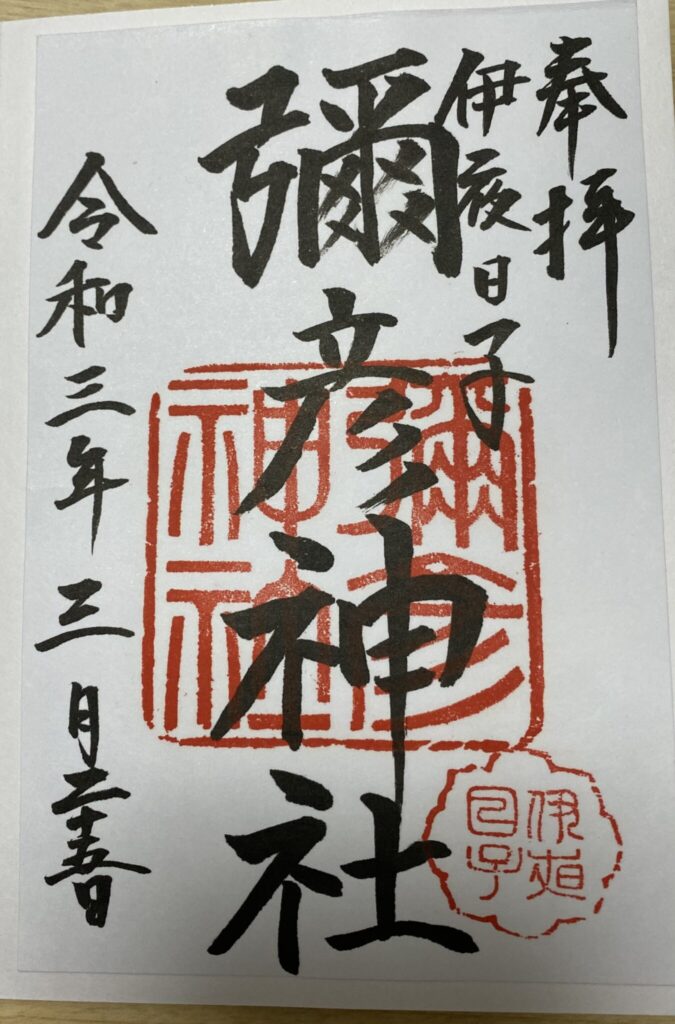 奉拝
伊夜日子
彌彦神社
彌彦
神社
伊夜
日子
令和三年三月二十五日